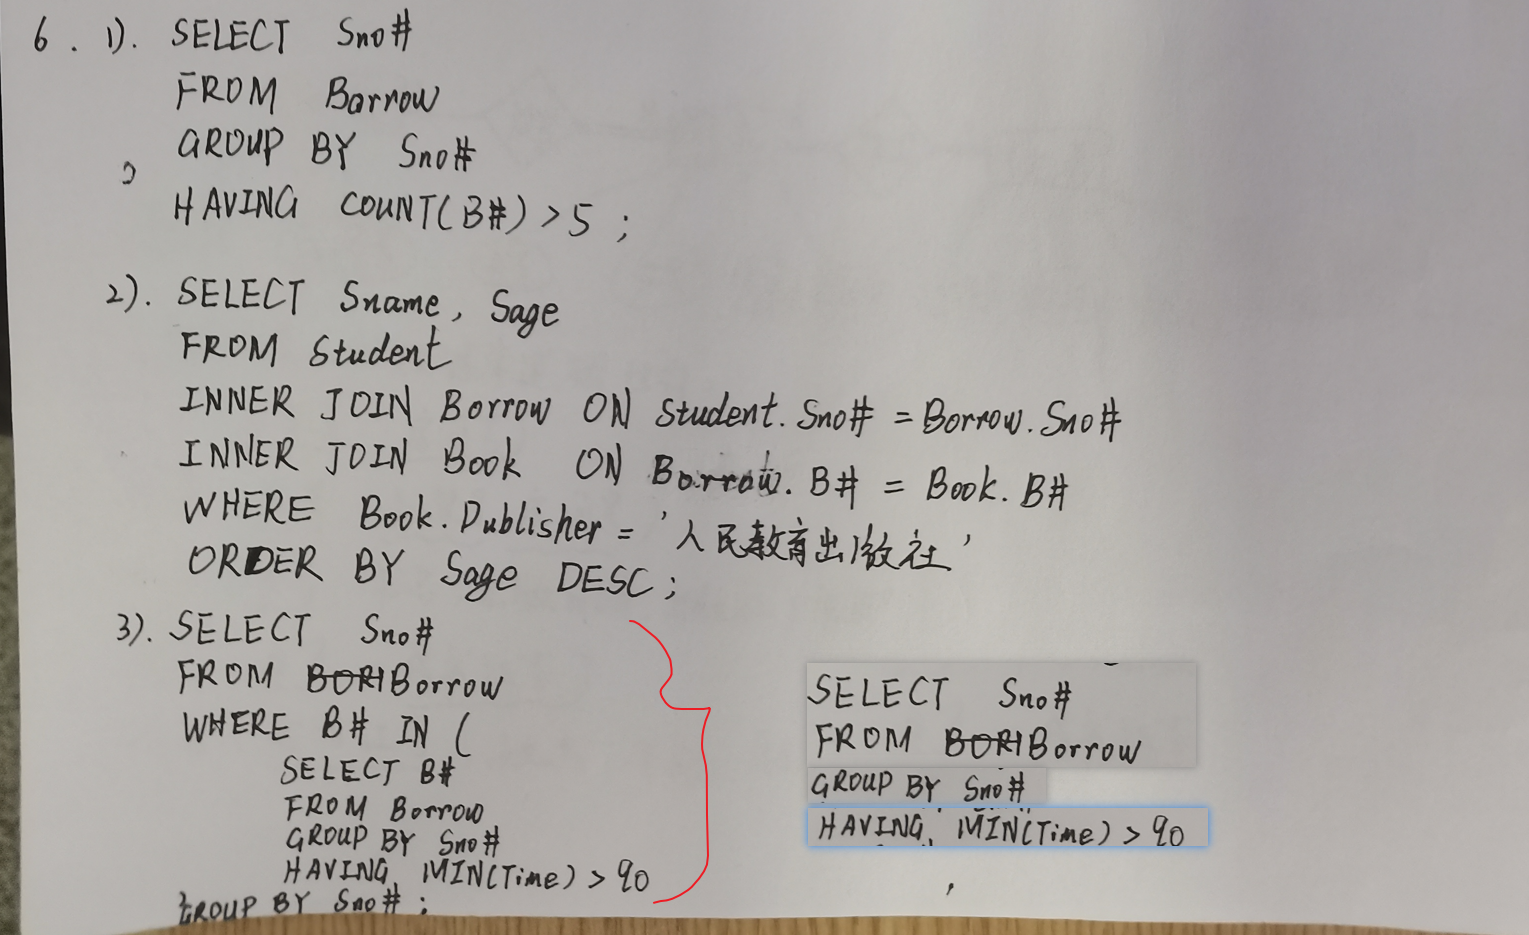 6. 1). SELECT Sno#
FROM Borrow
GROUP BY Sno#
HAVING COUNT(B#) > 5 ;
2). SELECT Sname, Sage
FROM Student
INNER JOIN Borrow ON Student.Sno# = Borrow.Sno#
INNER JOIN Book ON Borrow.B# = Book.B#
WHERE Book.Publisher = '人民教育出版社'
ORDER BY Sage DESC;
3). SELECT Sno#
FROM BORI Borrow
WHERE B# IN (
SELECT B#
FROM Borrow
GROUP BY Sno#
HAVING MIN(Time) > 90
) GROUP BY Sno# ;
SELECT Sno#
FROM BORI Borrow
GROUP BY Sno#
HAVING MIN(Time) > 90